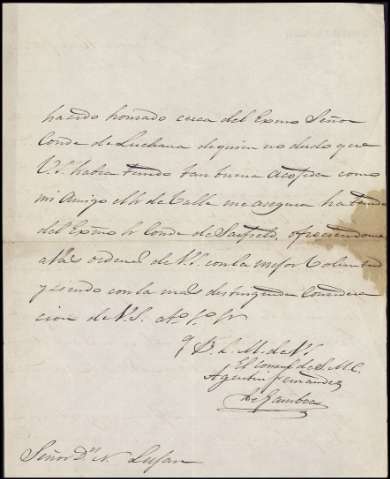 hacido honrado cerca del Exmo Señor
Conde de Luchana de quien no dudo que
V.S. habra tenido tan buena acojida como
mi Amigo el Sr de Calle me asegura
del Exmo Sr Conde de ofreciendome
a las ordenes de V.S. con la mejor Voluntad
y siendo con la mas distinguida Considera
cion de V.S. Ato. S. S.
q B. L. M. de V.S.
El Consul de S.M.C.
Agustin Fernandez
de Gamboa
Señor Dn N. Lujan